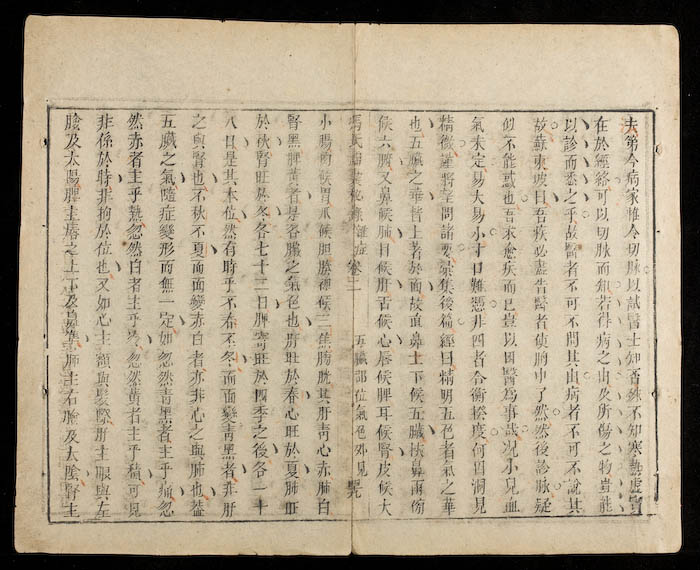 去第今病家惟令切脉以試醫士知否殊不知寒熱虛實
在於經絡可以切脉而知若得病之由及所傷之物豈能
以診而悉之乎故醫者不可不問其由病者不可不說其
故蘇東坡曰吾疾必盡告醫者使胸中了然然後診脉疑
似不能惑也吾求愈疾而已豈以困醫為事哉况小兒血
氣未定易大易小寸口難憑非四者合衡揆度何由洞見
精微謹將望問諸要纂集後篇經曰精明五色者氣之華
也五臟之華皆上著於面故面鼻上下候五臟挾鼻兩傍
候六腑又鼻候肺目候肝舌候心唇候脾耳候腎皮候大
馮氏錦囊秘錄雜症 卷二 五臟部位氣色外見
小腸肉候胃爪候胆腠理候三焦膀胱其肝青心赤肺白
腎黑脾黃者是各臟之氣色也肝旺於春心旺於夏肺旺
於秋腎旺於冬各七十二日脾寄旺於四季之後各一十
八日是其本位然有時乎不春不冬而面變青黑者非肝
之與腎也不秋不夏而面變赤白者亦非心之與肺也蓋
五臟之氣隨症變形而無一定如忽然青黑者主乎痛忽
然赤者主乎熱忽然白者主乎冷忽然黃者主乎積可見
非係於時非拘於位也又如心主額與髮際肝主眼與左
臉及太陽脾主唇之上下及鼻準肺主右臉及太陰腎主